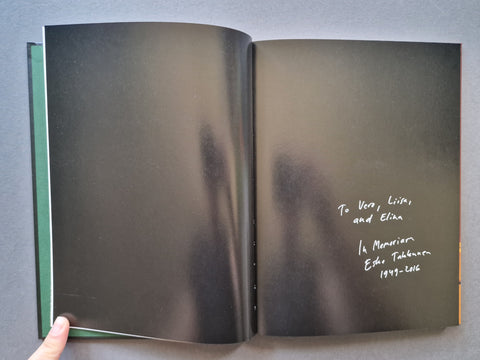 To Vera, Liisa,
and Elina
In Memoriam
Esko
1949–2016